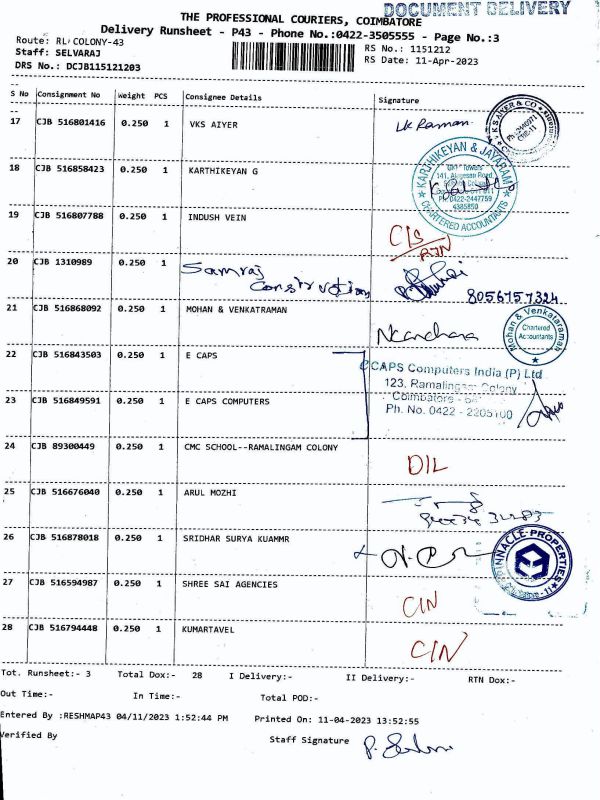 DOCUMENT DELIVERY
THE PROFESSIONAL COURIERS, COIMBATORE
Delivery Runsheet - P43 - Phone No.:0422-3505555 - Page No.:3
Route: RL COLONY-43
Staff: SELVARAJ
DRS No.: DCJB115121203
RS No.: 1151212
RS Date: 11-Apr-2023
S No Consignment No Weight PCS Consignee Details Signature
17 CJB 516801416 0.250 1 VKS AIYER
18 CJB 516858423 0.250 1 KARTHIKEYAN G
KARTHIKEYAN & JAYARAM
CHARTERED ACCOUNTANTS
19 CJB 516807788 0.250 1 INDUSH VEIN
20 CJB 1310989 0.250 1 Samraj Constrution
8056757324
21 CJB 516868092 0.250 1 MOHAN & VENKATRAMAN
Mohan & Venkataraman
Chartered
Accountants
22 CJB 516843503 0.250 1 E CAPS
CAPS Computers India (P) Ltd
123, Ramalingam Colony
Coimbatore
Ph. No. 0422 - 2205100
23 CJB 516849591 0.250 1 E CAPS COMPUTERS
24 CJB 89300449 0.250 1 CMC SCHOOL--RAMALINGAM COLONY
DIL
25 CJB 516676040 0.250 1 ARUL MOZHI
26 CJB 516878018 0.250 1 SRIDHAR SURYA KUAMMR
PINNACLE-PROPERTIES
27 CJB 516594987 0.250 1 SHREE SAI AGENCIES
CIN
28 CJB 516794448 0.250 1 KUMARTAVEL
CIN
Tot. Runsheet:- 3 Total Dox:- 28 I Delivery:- II Delivery:- RTN Dox:-
Out Time:- In Time:- Total POD:-
Entered By :RESHMAP43 04/11/2023 1:52:44 PM Printed On: 11-04-2023 13:52:55
Verified By
Staff Signature